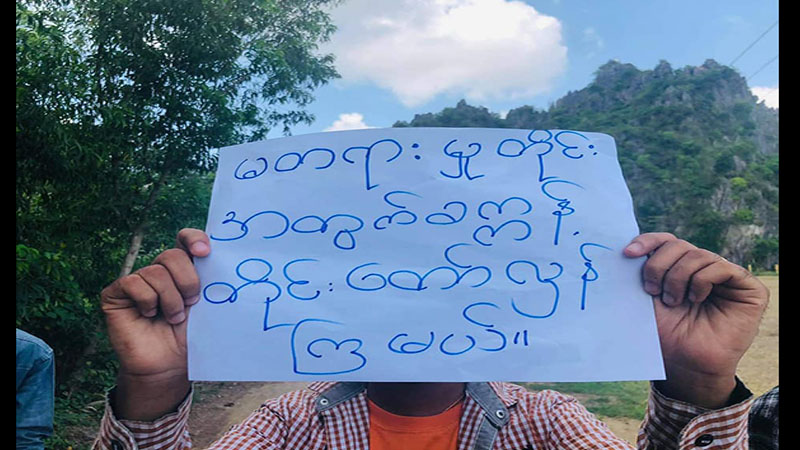 မတရားမှုတိုင်း
အတွက်ခဏ္ဍာန့်
တိုင်းတော်လှန်
ကြမယ်။